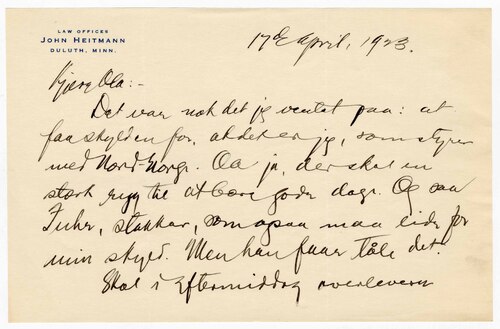 LAW OFFICES
JOHN HEITMANN
DULUTH, MINN.
17de April, 1923.
Kjære Ola:-
Det var nok det jeg ventet paa: at
faa skylden for, at det er jeg, som styrer
med Nord-Norge. Oa ja, der skal en
sterk rygg til at bære gode dage. Og saa
Fuhr, stakkar, som ogsaa maa lide for
min skyld. Men han faaer tåle det.
Skal i Eftermiddag overlevere